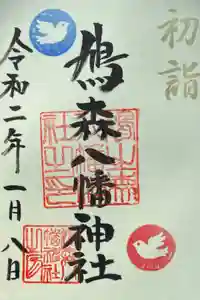 初詣
鳩森八幡神社
令和二年一月八日